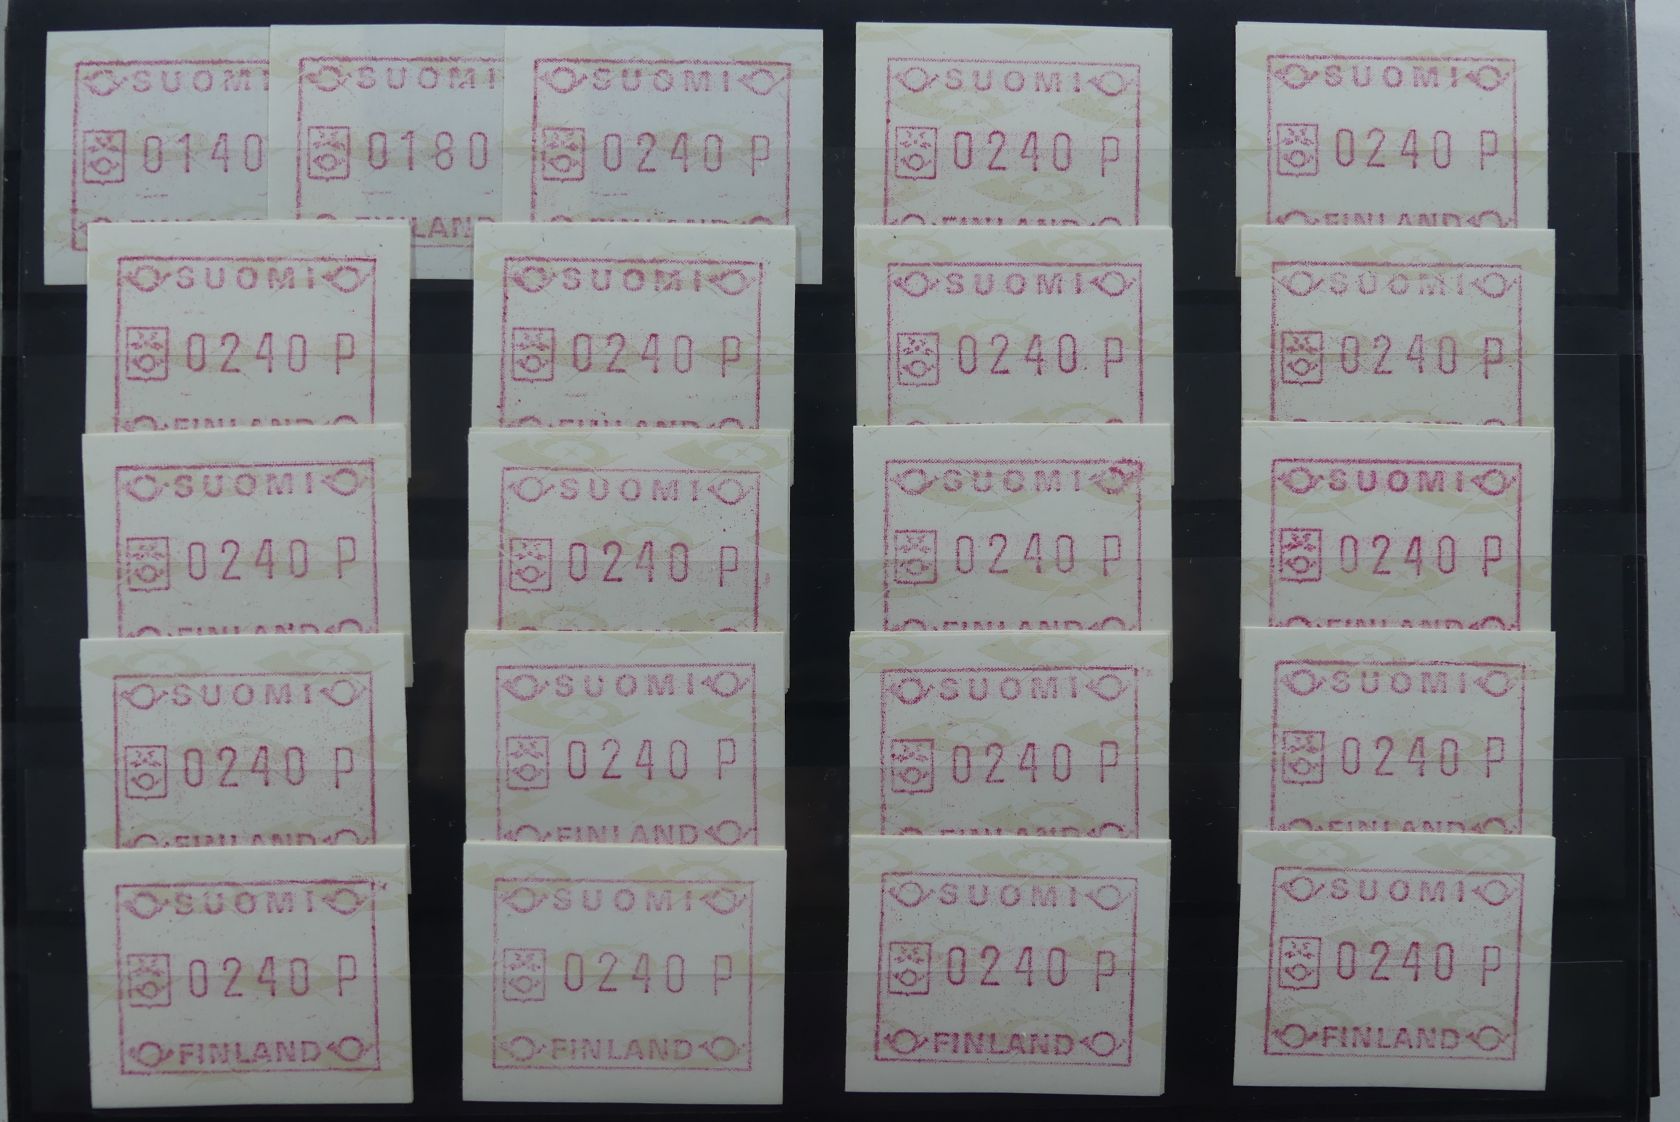 SUOMI SUOMI SUOMI SUOMI SUOMI
0140 0180 0240 P 0240 P 0240 P
FINLAND FINLAND FINLAND
SUOMI SUOMI SUOMI SUOMI
0240 P 0240 P 0240 P 0240 P
FINLAND FINLAND
SUOMI SUOMI SUOMI SUOMI
0240 P 0240 P 0240 P 0240 P
FINLAND FINLAND FINLAND
SUOMI SUOMI SUOMI SUOMI
0240 P 0240 P 0240 P 0240 P
FINLAND FINLAND FINLAND FINLAND
SUOMI SUOMI SUOMI SUOMI
0240 P 0240 P 0240 P 0240 P
FINLAND FINLAND FINLAND FINLAND